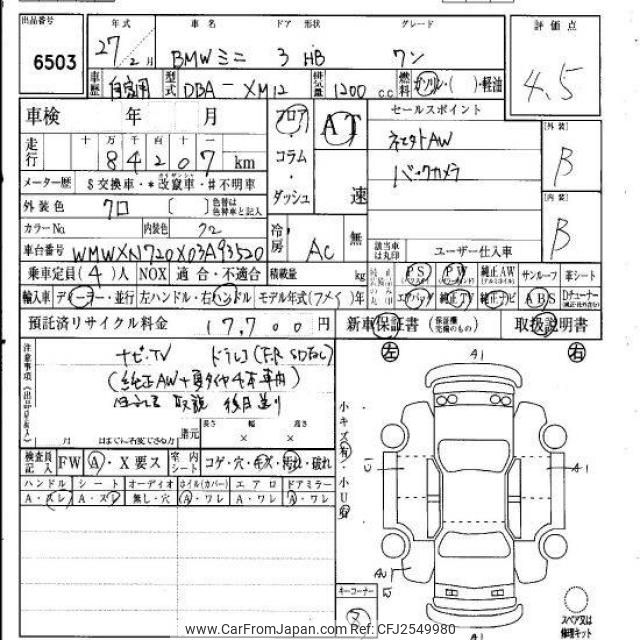 出品番号
6503
年式 車名 ドア 形状 グレード
27/2月 BMWミニ 3 HB ワン
評価点
4.5
車歴 自家用 型式 DBA-XM12 排気量 1200 c.c 燃料 ガソリン・( )・軽油
車検 年 月
フロア
コラム
・
ダッシュ
AT
速
セールスポイント
AW
バックカメラ
[外装]
B
[内装]
B
走行 十 万 千 百 十 一
84207 km
メーター歴 $交換車・*改竄車・#不明車
外装色 クロ [ ] 色替は色替車と記入
カラーNo. 内装色 クロ
冷房 AC 無
該当車は丸印 ユーザー仕入車
車台番号 WMWXN720X03A93520
乗車定員(4)人 NOX 適合・不適合 積載量 kg
PS PW 純正AW サンルーフ 革シート
輸入車 ディーラー・並行 左ハンドル・右ハンドル モデル年式(フメイ)年
エアバッグ 純正TV 純正ナビ ABS Dチューナー
預託済リサイクル料金 17,700円
新車保証書(保証継承完備のもの) 取扱説明書
注意事項(出品店記入)
ナビ・TV ドラレコ(F.R SDなし)
取説 後日送り
月 日までに名変できる方
諸元 長さ 幅 高さ
左 A1 右
小キズ有・小U有
検査員記入 FW A・X要ス 室内シート コゲ・穴・キズ・汚れ・破れ
ハンドル シート オーディオ ホイル(カバー) エアロ ドアミラー
A・スレ A・スレ 無し・穴 A・ワレ A・ワレ A・ワレ
U1
A1
AU1
キーコーナー
ヌ
A1
スペア又は修理キット
www.CarFromJapan.com Ref: CFJ2549980